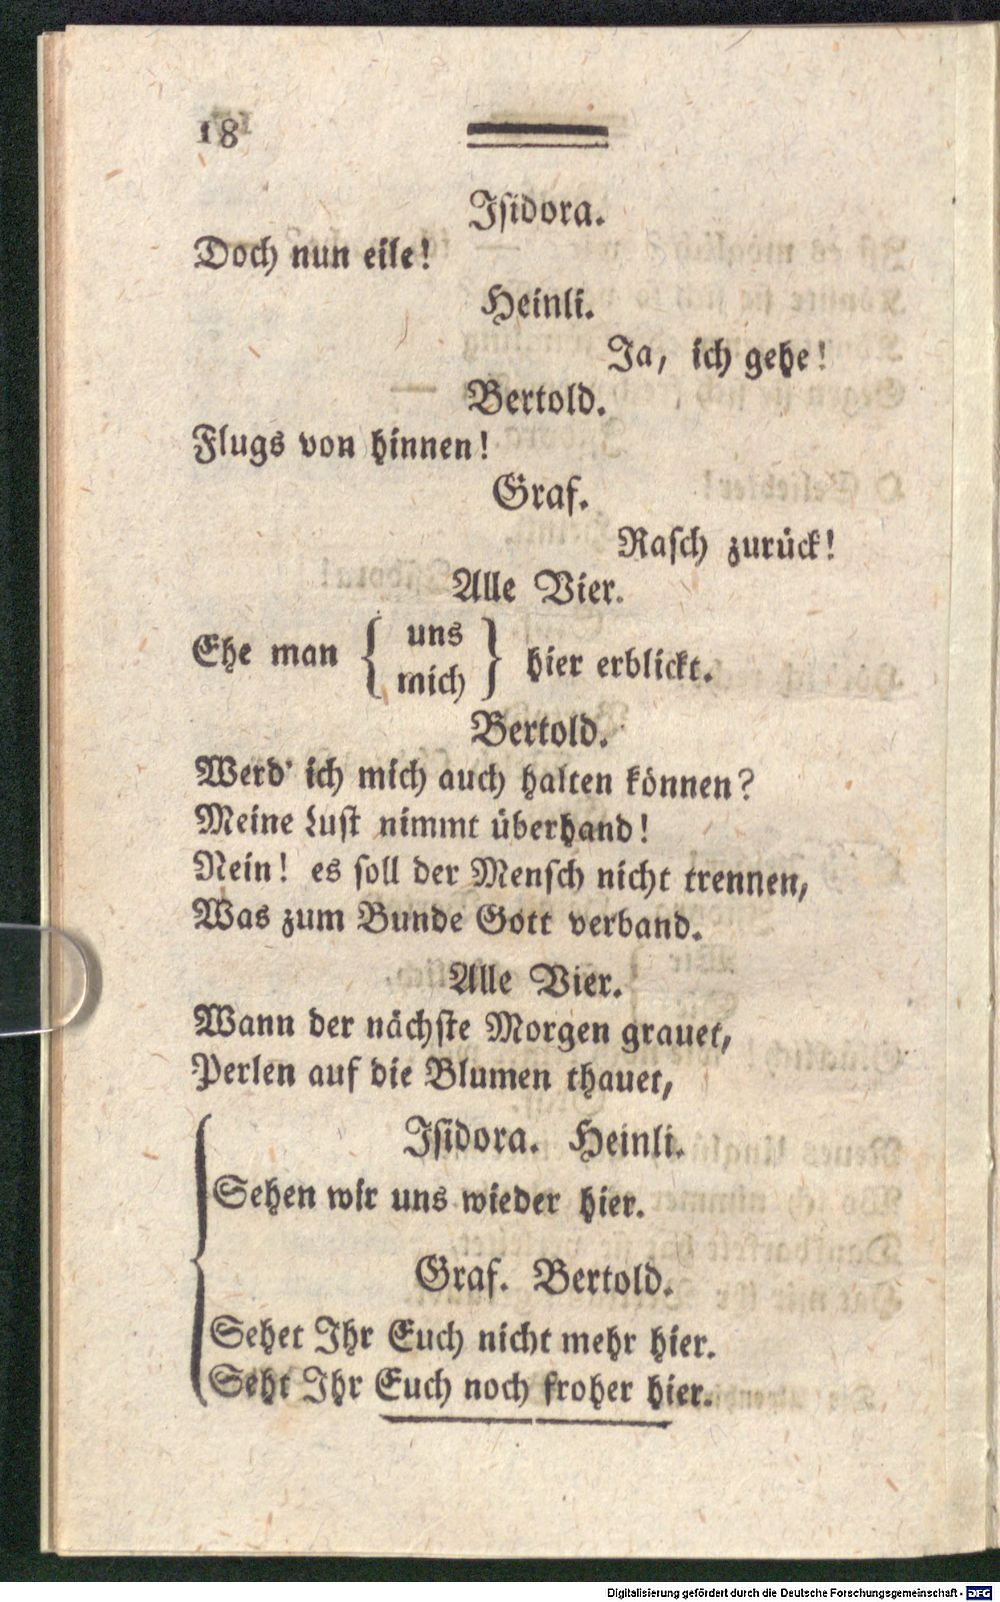 18
Iſidora.
Doch nun eile!
Heinli.
Ja, ich gehe!
Bertold.
Flugs von hinnen!
Graf.
Raſch zurück!
Alle Vier.
Ehe man { uns / mich } hier erblickt.
Bertold.
Werd' ich mich auch halten können?
Meine Luſt nimmt überhand!
Nein! es ſoll der Menſch nicht trennen,
Was zum Bunde Gott verband.
Alle Vier.
Wann der nächſte Morgen grauet,
Perlen auf die Blumen thauet,
Iſidora. Heinli.
Sehen wir uns wieder hier.
Graf. Bertold.
Sehet Ihr Euch nicht mehr hier.
Seht Ihr Euch noch froher hier.
Digitalisierung gefördert durch die Deutsche Forschungsgemeinschaft - DFG